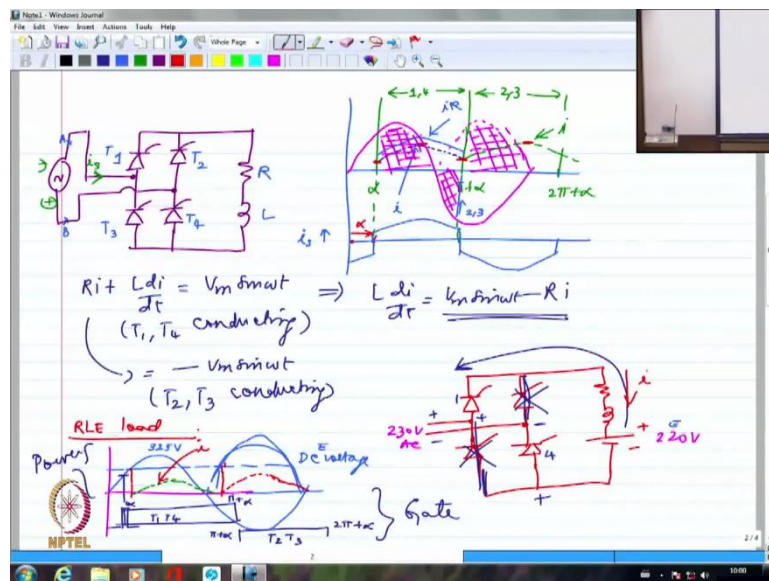 Note1 - Windows Journal
File Edit View Insert Actions Tools Help
Whole Page
B I
1,4
2,3
iR
i
α
i
π+α
2,3
2π+α
is ↑
α
A
is
B
T1
T2
T3
T4
R
L
Ri + L di/dt = Vm sin ωt ⇒ L di/dt = Vm sin ωt - Ri
(T1, T4 conducting)
= - Vm sin ωt
(T2, T3 conducting)
RLE load
Powers
325V
i
E
DC voltage
α
π+α
T1 T4
π+α
T2 T3
2π+α
} Gate
+
230V
AC
-
1
4
+
-
+
i
E
+
220V
-
NPTEL
2
2/4
10:00